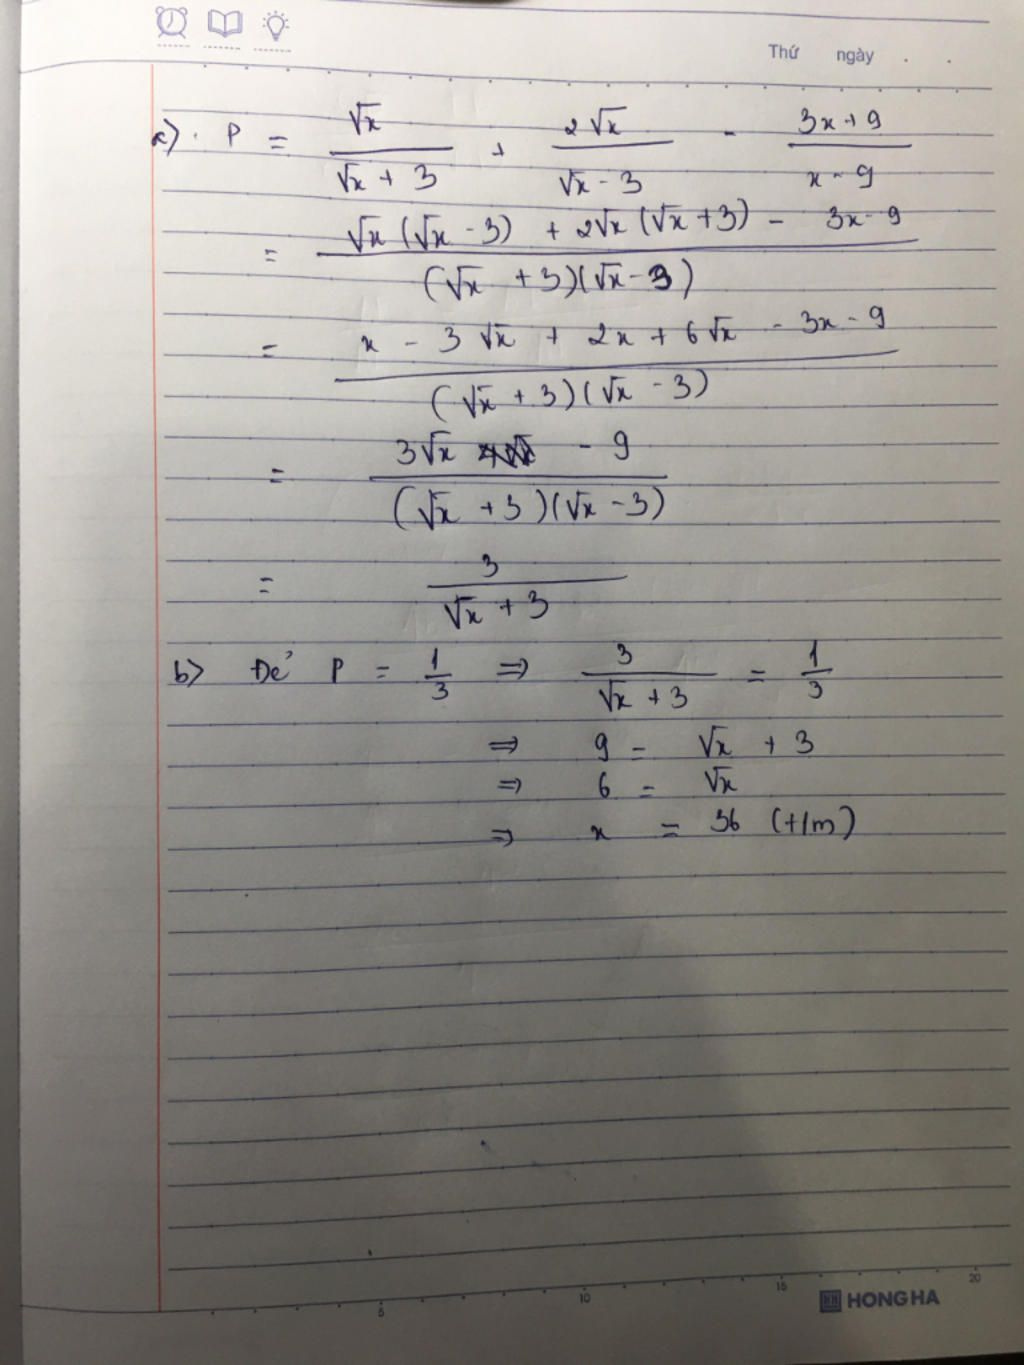 Thứ ngày . .
a) . P = √x / (√x + 3) + 2√x / (√x - 3) - (3x + 9) / (x - 9)
= (√x (√x - 3) + 2√x (√x + 3) - 3x - 9) / ((√x + 3)(√x - 3))
= (x - 3√x + 2x + 6√x - 3x - 9) / ((√x + 3)(√x - 3))
= (3√x - 9) / ((√x + 3)(√x - 3))
= 3 / (√x + 3)
b) Để P = 1/3 => 3 / (√x + 3) = 1/3
=> 9 = √x + 3
=> 6 = √x
=> x = 36 (t/m)
5 10 15 20
HONG HA